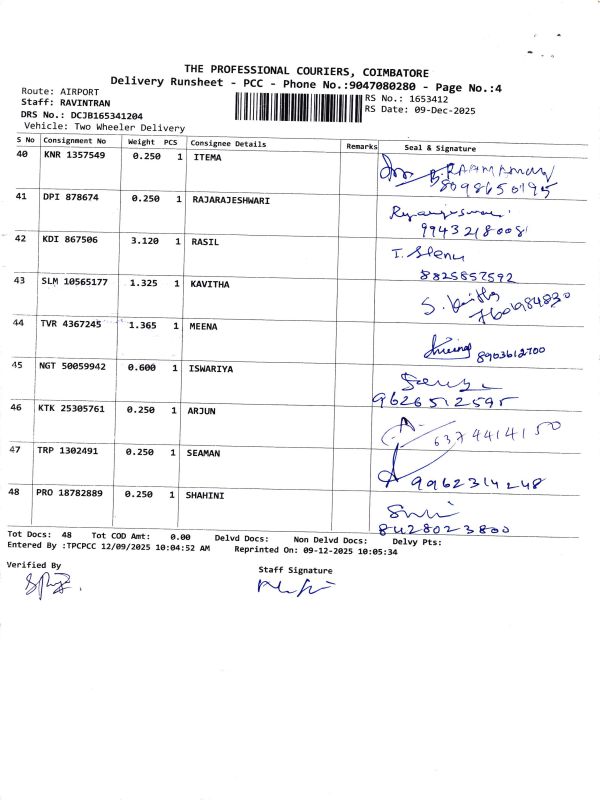 THE PROFESSIONAL COURIERS, COIMBATORE
Delivery Runsheet - PCC - Phone No.:9047080280 - Page No.:4
Route: AIRPORT
Staff: RAVINTRAN
DRS No.: DCJB165341204
Vehicle: Two Wheeler Delivery
RS No.: 1653412
RS Date: 09-Dec-2025
S No Consignment No Weight PCS Consignee Details Remarks Seal & Signature
40 KNR 1357549 0.250 1 ITEMA
8098650195
41 DPI 878674 0.250 1 RAJARAJESHWARI
9943218008
42 KDI 867506 3.120 1 RASIL
8825857592
43 SLM 10565177 1.325 1 KAVITHA
7601984830
44 TVR 4367245 1.365 1 MEENA
8903612700
45 NGT 50059942 0.600 1 ISWARIYA
9626512595
46 KTK 25305761 0.250 1 ARJUN
6374414150
47 TRP 1302491 0.250 1 SEAMAN
9962314248
48 PRO 18782889 0.250 1 SHAHINI
8428023800
Tot Docs: 48 Tot COD Amt: 0.00 Delvd Docs: Non Delvd Docs: Delvy Pts:
Entered By :TPCPCC 12/09/2025 10:04:52 AM Reprinted On: 09-12-2025 10:05:34
Verified By
Staff Signature